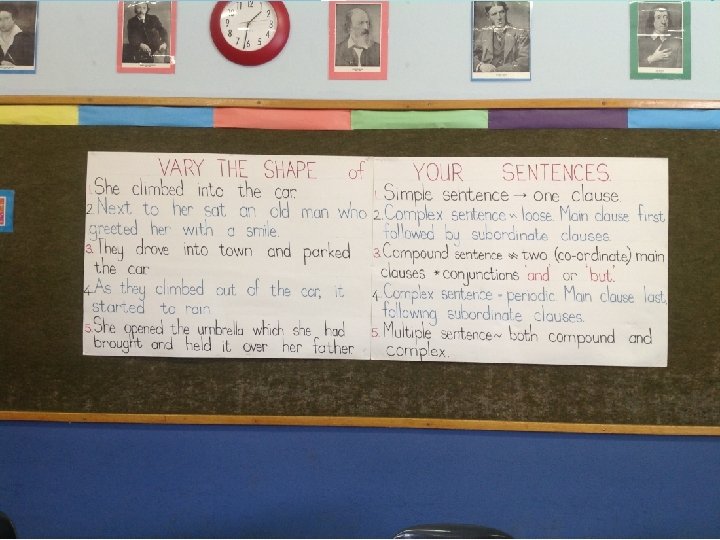 VARY THE SHAPE of YOUR SENTENCES.
1. She climbed into the car.
2. Next to her sat an old man who
greeted her with a smile.
3. They drove into town and parked
the car
4. As they climbed out of the car, it
started to rain.
5. She opened the umbrella which she had
brought and held it over her father.
1. Simple sentence → one clause.
2. Complex sentence ~ loose. Main clause first,
followed by subordinate clauses.
3. Compound sentence ~ two (co-ordinate) main
clauses * conjunctions 'and' or 'but'.
4. Complex sentence - periodic. Main clause last,
following subordinate clauses.
5. Multiple sentence ~ both compound and
complex.